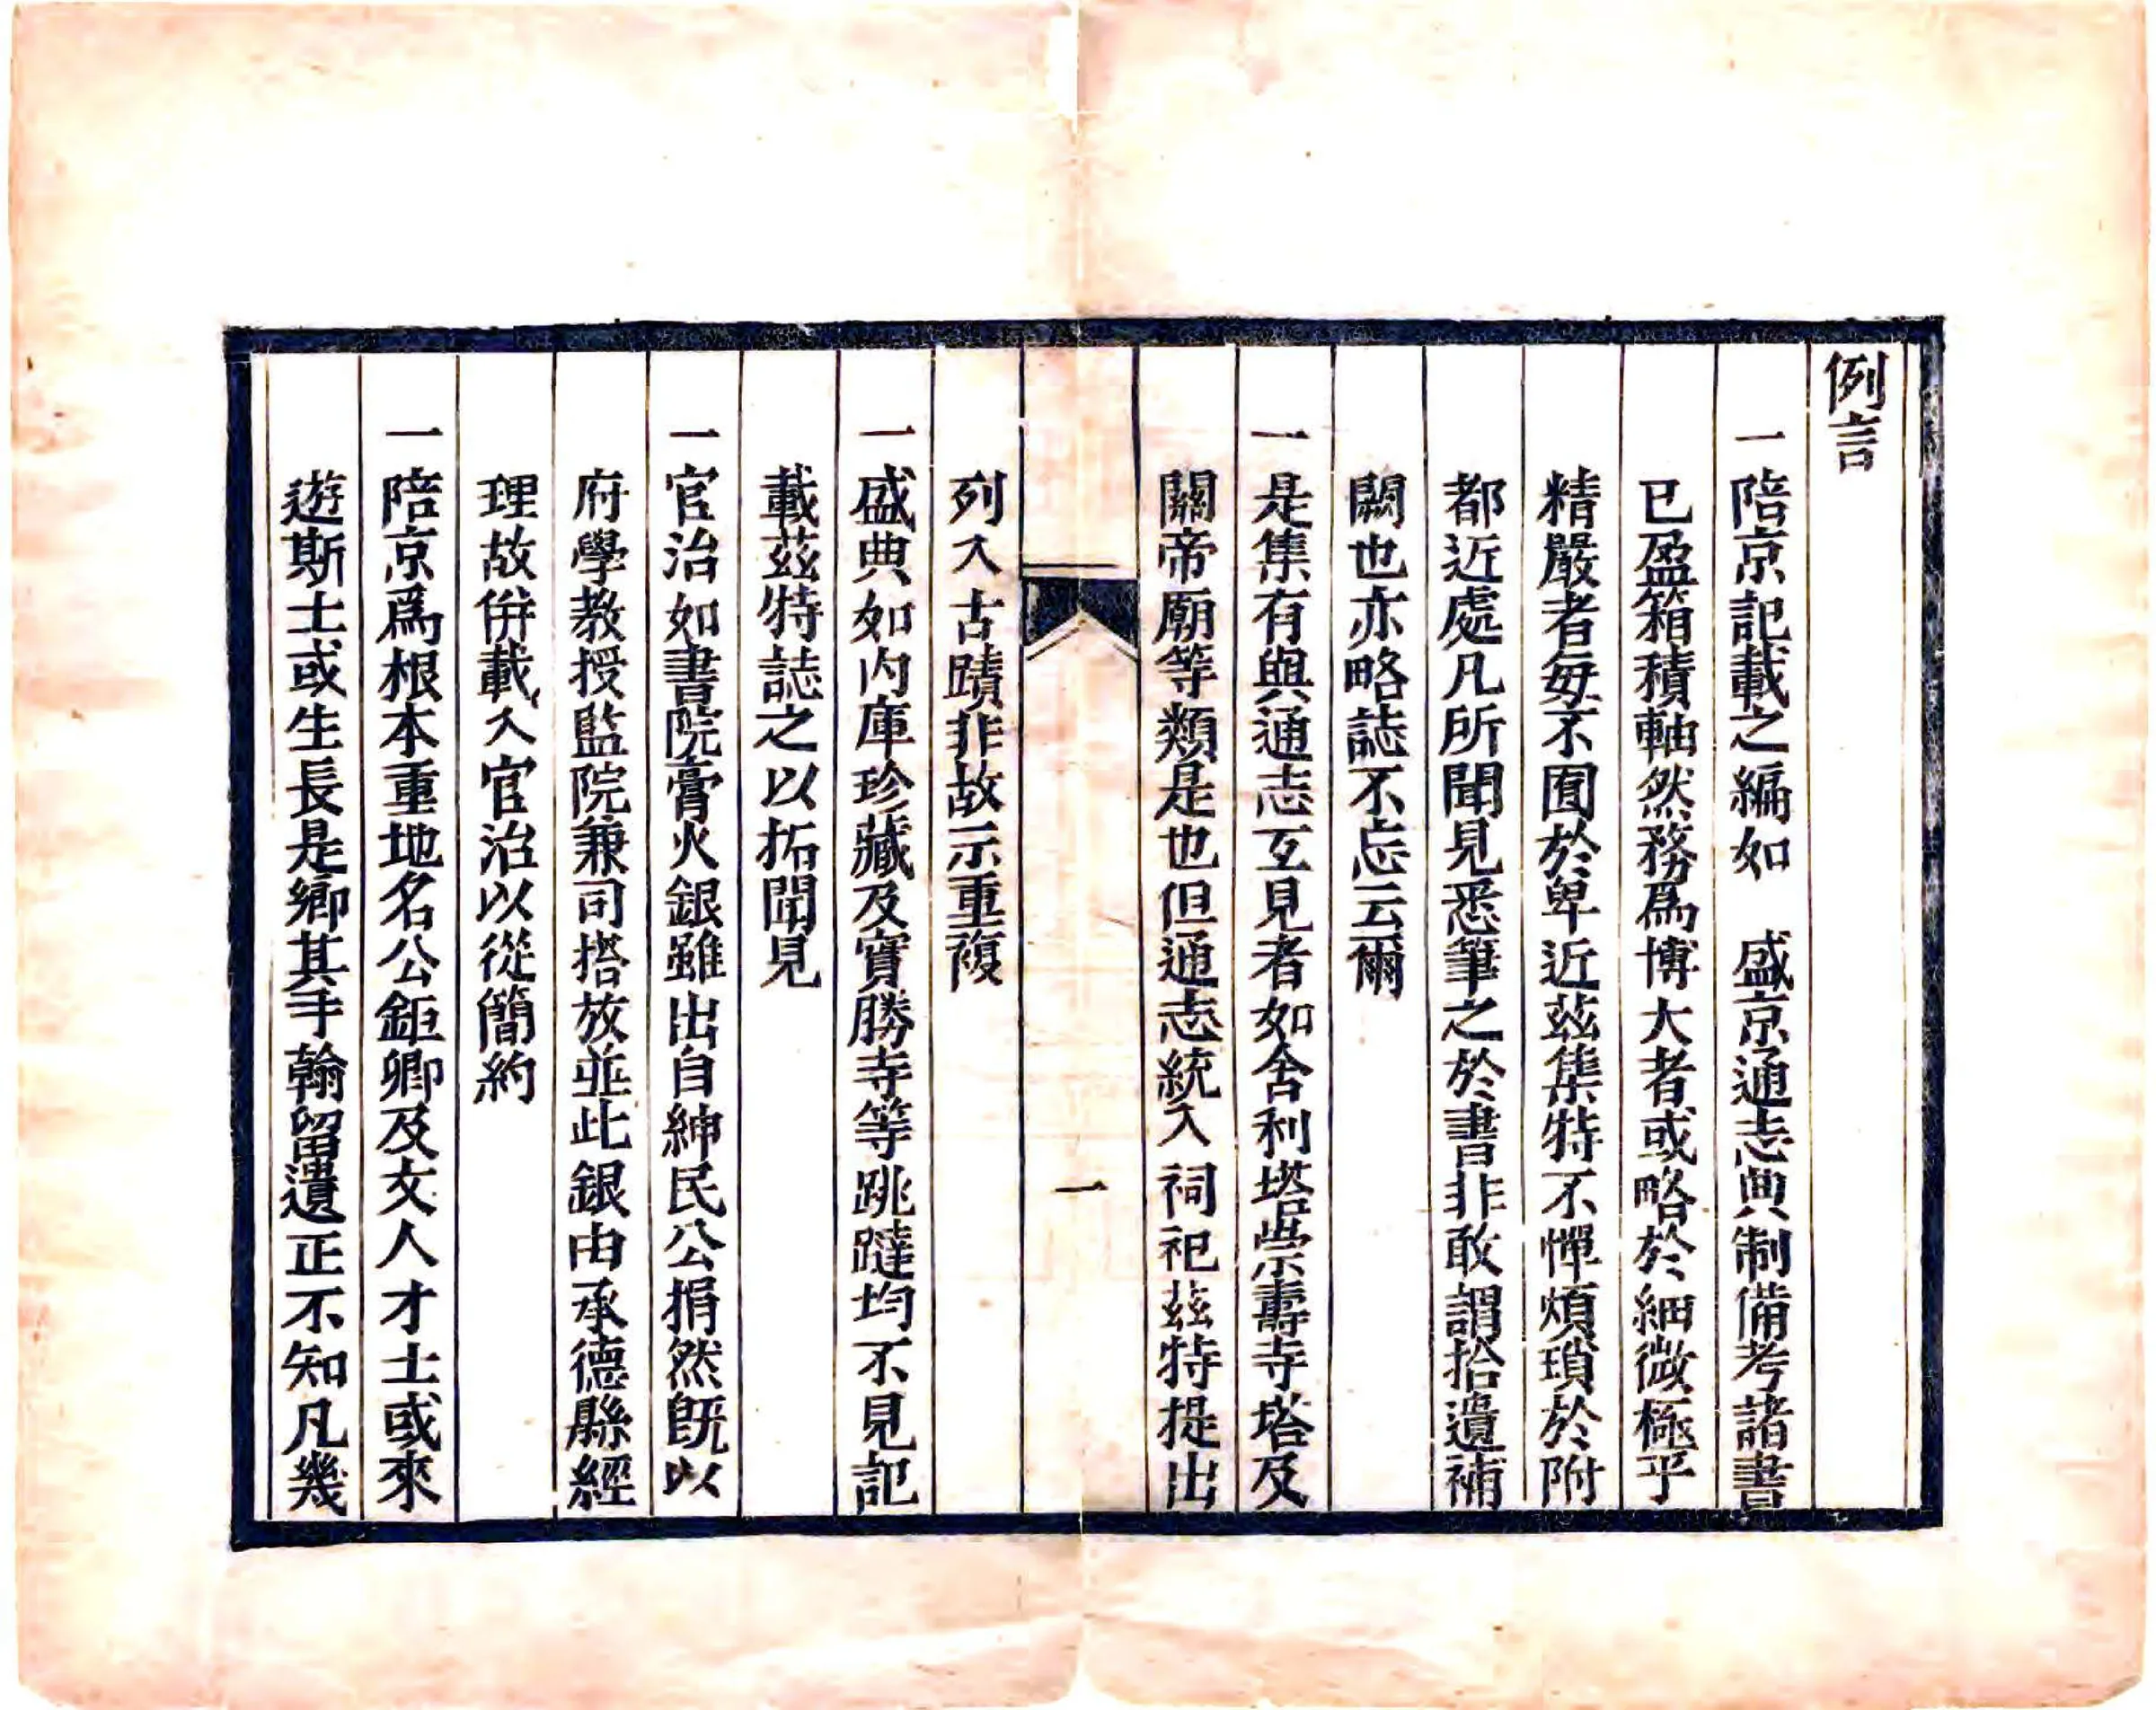 例言
一陪京記載之編如　盛京通志典制備考諸書
已盈箱積軸然務爲博大者或略於細微極乎
精嚴者每不囿於卑近茲集特不憚煩瑣於附
都近處凡所聞見悉筆之於書非敢謂拾遺補
闕也亦略誌不忘云爾
一是集有與通志互見者如舍利塔崇壽寺塔及
關帝廟等類是也但通志統入祠祀茲特提出
一
列入古蹟非故示重複
一盛典如内庫珍藏及實勝寺等跳躂均不見記
載茲特誌之以拓聞見
一官治如書院膏火銀雖出自紳民公捐然既以
府學教授監院兼司撘放並此銀由承德縣經
理故併載入官治以從簡約
一陪京爲根本重地名公鉅卿及文人才士或來
遊斯土或生長是鄉其手翰留遺正不知凡幾